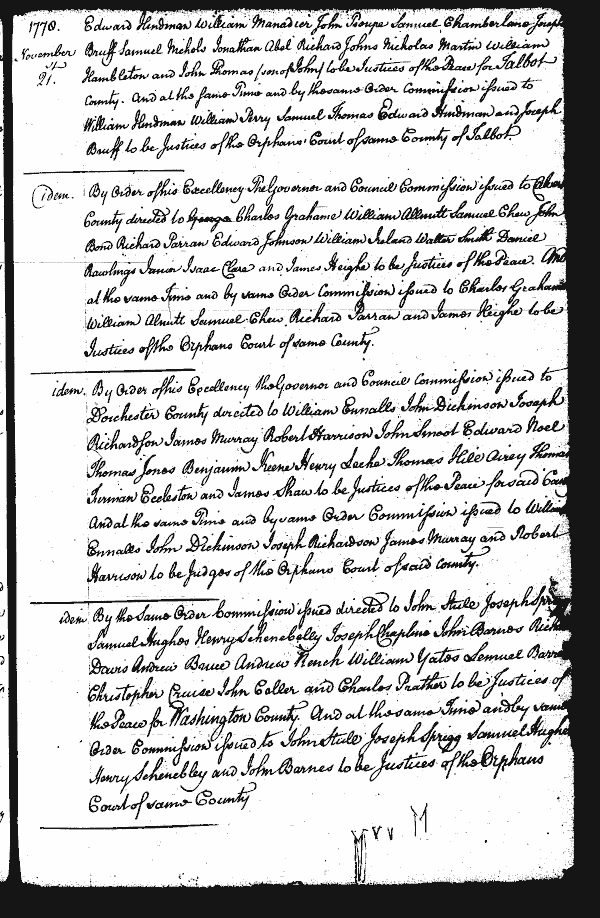 1778. Edward Hindman William Manadier John Troupe Samuel Chamberlane Joseph
November 21st. Bruff Samuel Nichols Jonathan Abel Richard Johns Nicholas Martin William
Hambleton and John Thomas (son of John) to be Justices of the Peace for Talbot
County. And at the same Time and by the same Order Commission issued to
William Hindman William Perry Samuel Thomas Edward Hindman and Joseph
Bruff to be Justices of the Orphans Court of same County of Talbot.
idem. By Order of his Excellency The Governor and Council Commission issued to
County directed to George Charles Grahame William Allnutt Samuel Chew John
Bond Richard Parran Edward Johnson William Ireland Walter Smith Daniel
Rawlings Junior Isaac Clare and James Heighe to be Justices of the Peace. And
at the same Time and by same Order Commission issued to Charles Grahame
William Alnutt Samuel Chew Richard Parran and James Heighe to be
Justices of the Orphans Court of same County.
idem. By Order of his Excellency the Governor and Council Commission issued to
Dorchester County directed to William Ennalls John Dickinson Joseph
Richardson James Murray Robert Harrison John Smoot Edward Noel
Thomas Jones Benjamin Keene Henry Lecke Thomas Hill Airey Thomas
Firman Eccleston and James Shaw to be Justices of the Peace for said
And at the same Time and by same Order Commission issued to William
Ennalls John Dickinson Joseph Richardson James Murray and Robert
Harrison to be Judges of the Orphans Court of said County.
idem By the Same Order Commission issued directed to John Stule Joseph
Samuel Hughes Henry Schenebelly Joseph Chapline John Barnes
Davis Andrew Bruce Andrew Rench William Yates Lemuel
Christopher Cruise John Celler and Charles Prather to be Justices of
the Peace for Washington County. And at the same Time and by same
Order Commission issued to John Stule Joseph Sprigg Samuel Hughes
Henry Schenebley and John Barnes to be Justices of the Orphans
Court of same County